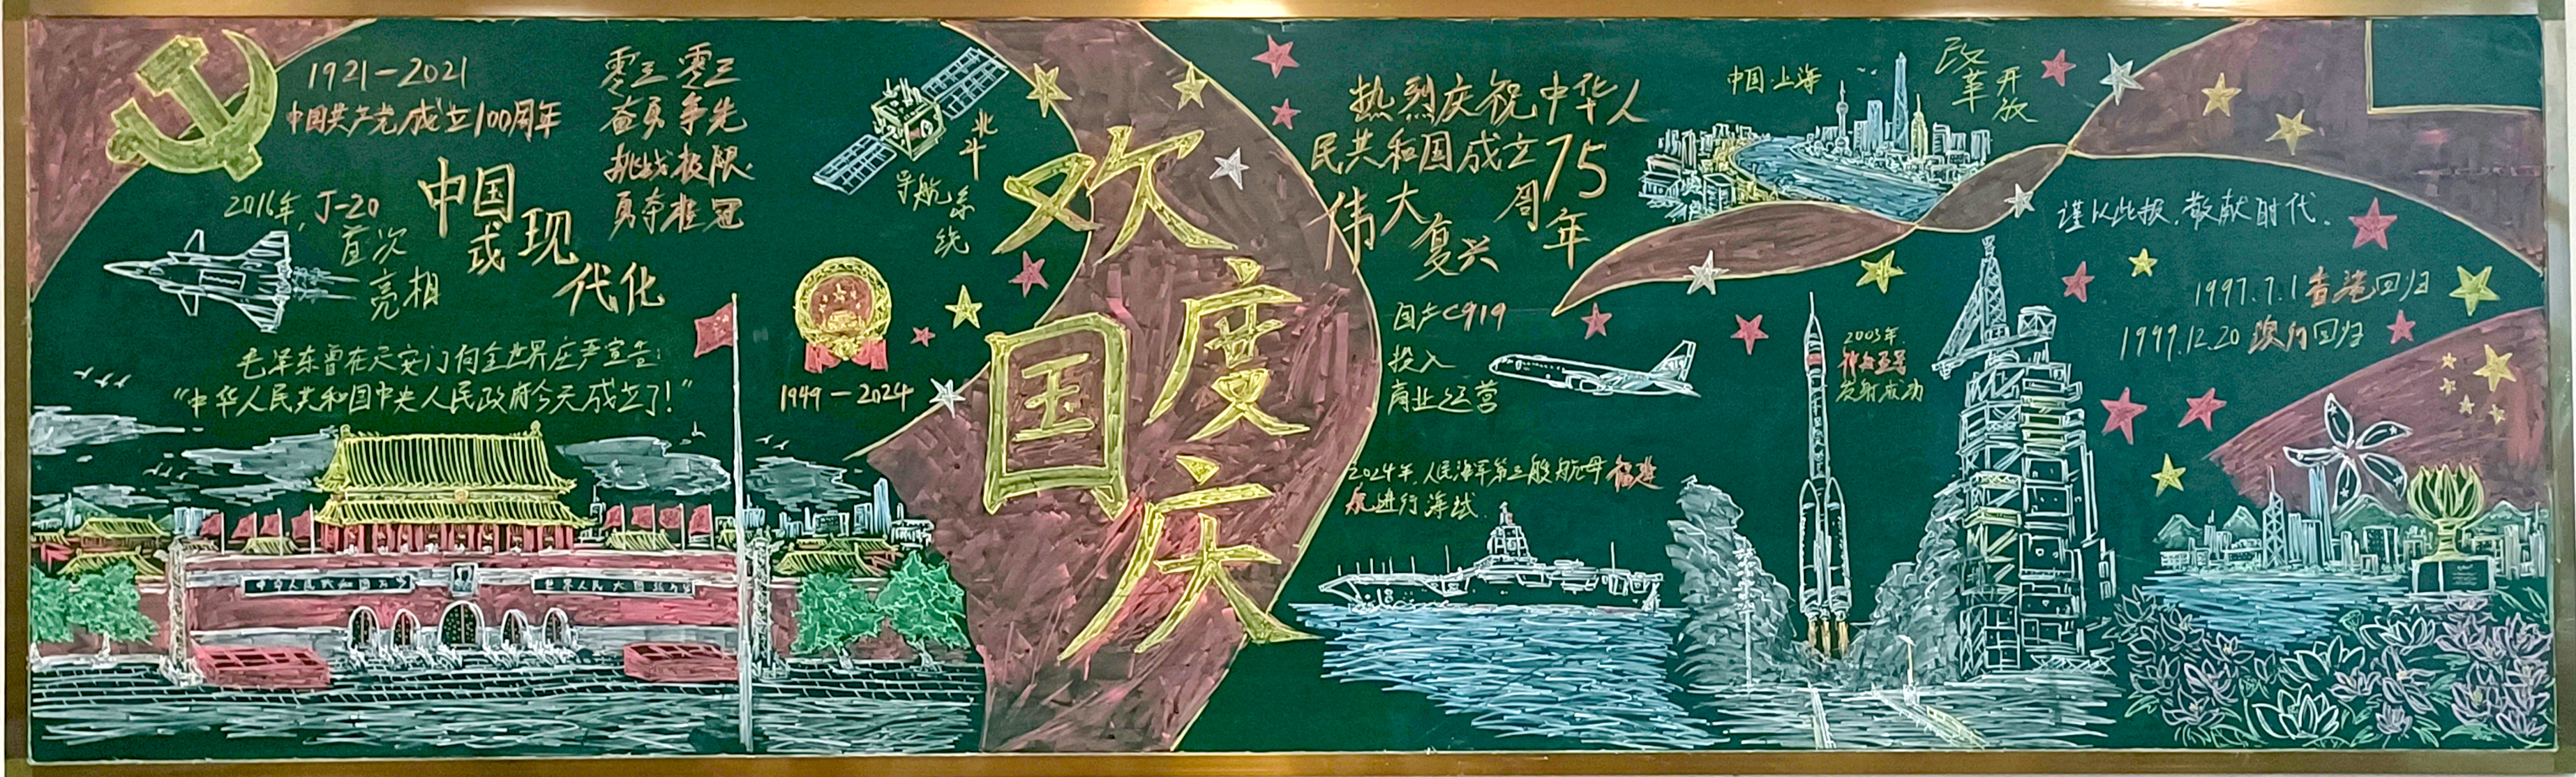 1921-2021
中国共产党成立100周年
零三零三
奋勇争先
挑战极限
勇夺桂冠
2016年，J-20
首次
亮相
中国
式现
代化
毛泽东曾在天安门向全世界庄严宣告：
“中华人民共和国中央人民政府今天成立了！”
北斗
导航系统
1949-2024
欢度
国庆
热烈庆祝中华人
民共和国成立75
周年
伟大
复兴
中国·上海
改革开放
国产C919
投入
商业运营
2024年，人民海军第三艘航母福建
舰进行海试
2003年
神舟五号
发射成功
谨以此报，敬献时代。
1997.7.1香港回归
1999.12.20澳门回归
中华人民共和国万岁
世界人民大团结万岁